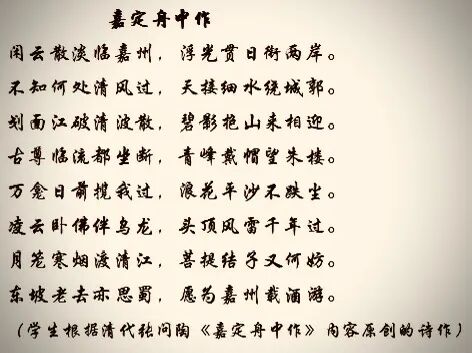 嘉定舟中作
闲云散淡临嘉州，浮光贯日衔两岸。
不知何处清风过，天接细水绕城郭。
划面江破清波散，碧影艳山来相迎。
古尊临流都坐断，青峰戴帽望朱楼。
万龛日前揽我过，浪花平沙不跌坐。
凌云卧佛伴乌龙，头顶风雷千年过。
月笼寒烟渡清江，菩提结子又何妨。
东坡老去亦思蜀，愿为嘉州载酒游。
（学生根据清代张问陶《嘉定舟中作》内容原创的诗作）